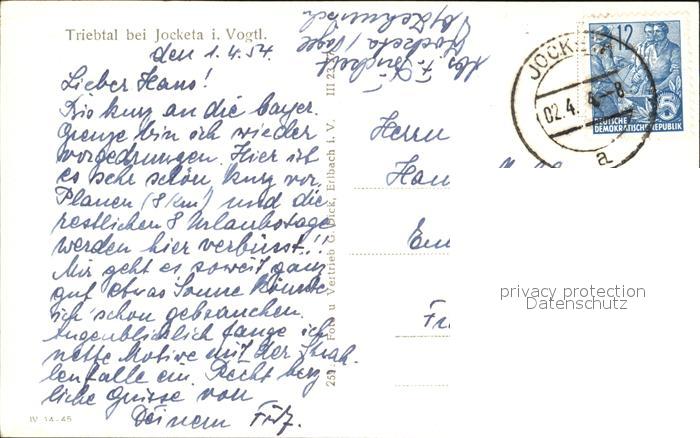 Triebtal bei Jocketa i. Vogtl.
den 1.4.54
Lieber Hans!
Bis kurz an die bayer.
Grenze bin ich wieder
vorgedrungen. Hier ist
es sehr schön kurz vor
Plauen (8 km) und die
restlichen 8 Urlaubstage
werden hier verbüsst!!
Mir geht es soweit ganz
gut etwas Sonne könnte
ich schon gebrauchen.
Augenblicklich fange ich
nette Motive mit der Strah-
lenfalle ein. Recht herz-
liche Grüsse von
Deinem Fritz.
IV 14-45
Foto u Vertrieb G. Dick, Erlbach i. V.
III 23
Abs. F.
Jocketa / Vogtl.
Herrn
Han
Em
Fr
JOCKETA
02.4. -8
a
12
DEUTSCHE
DEMOKRATISCHE REPUBLIK
privacy protection
Datenschutz